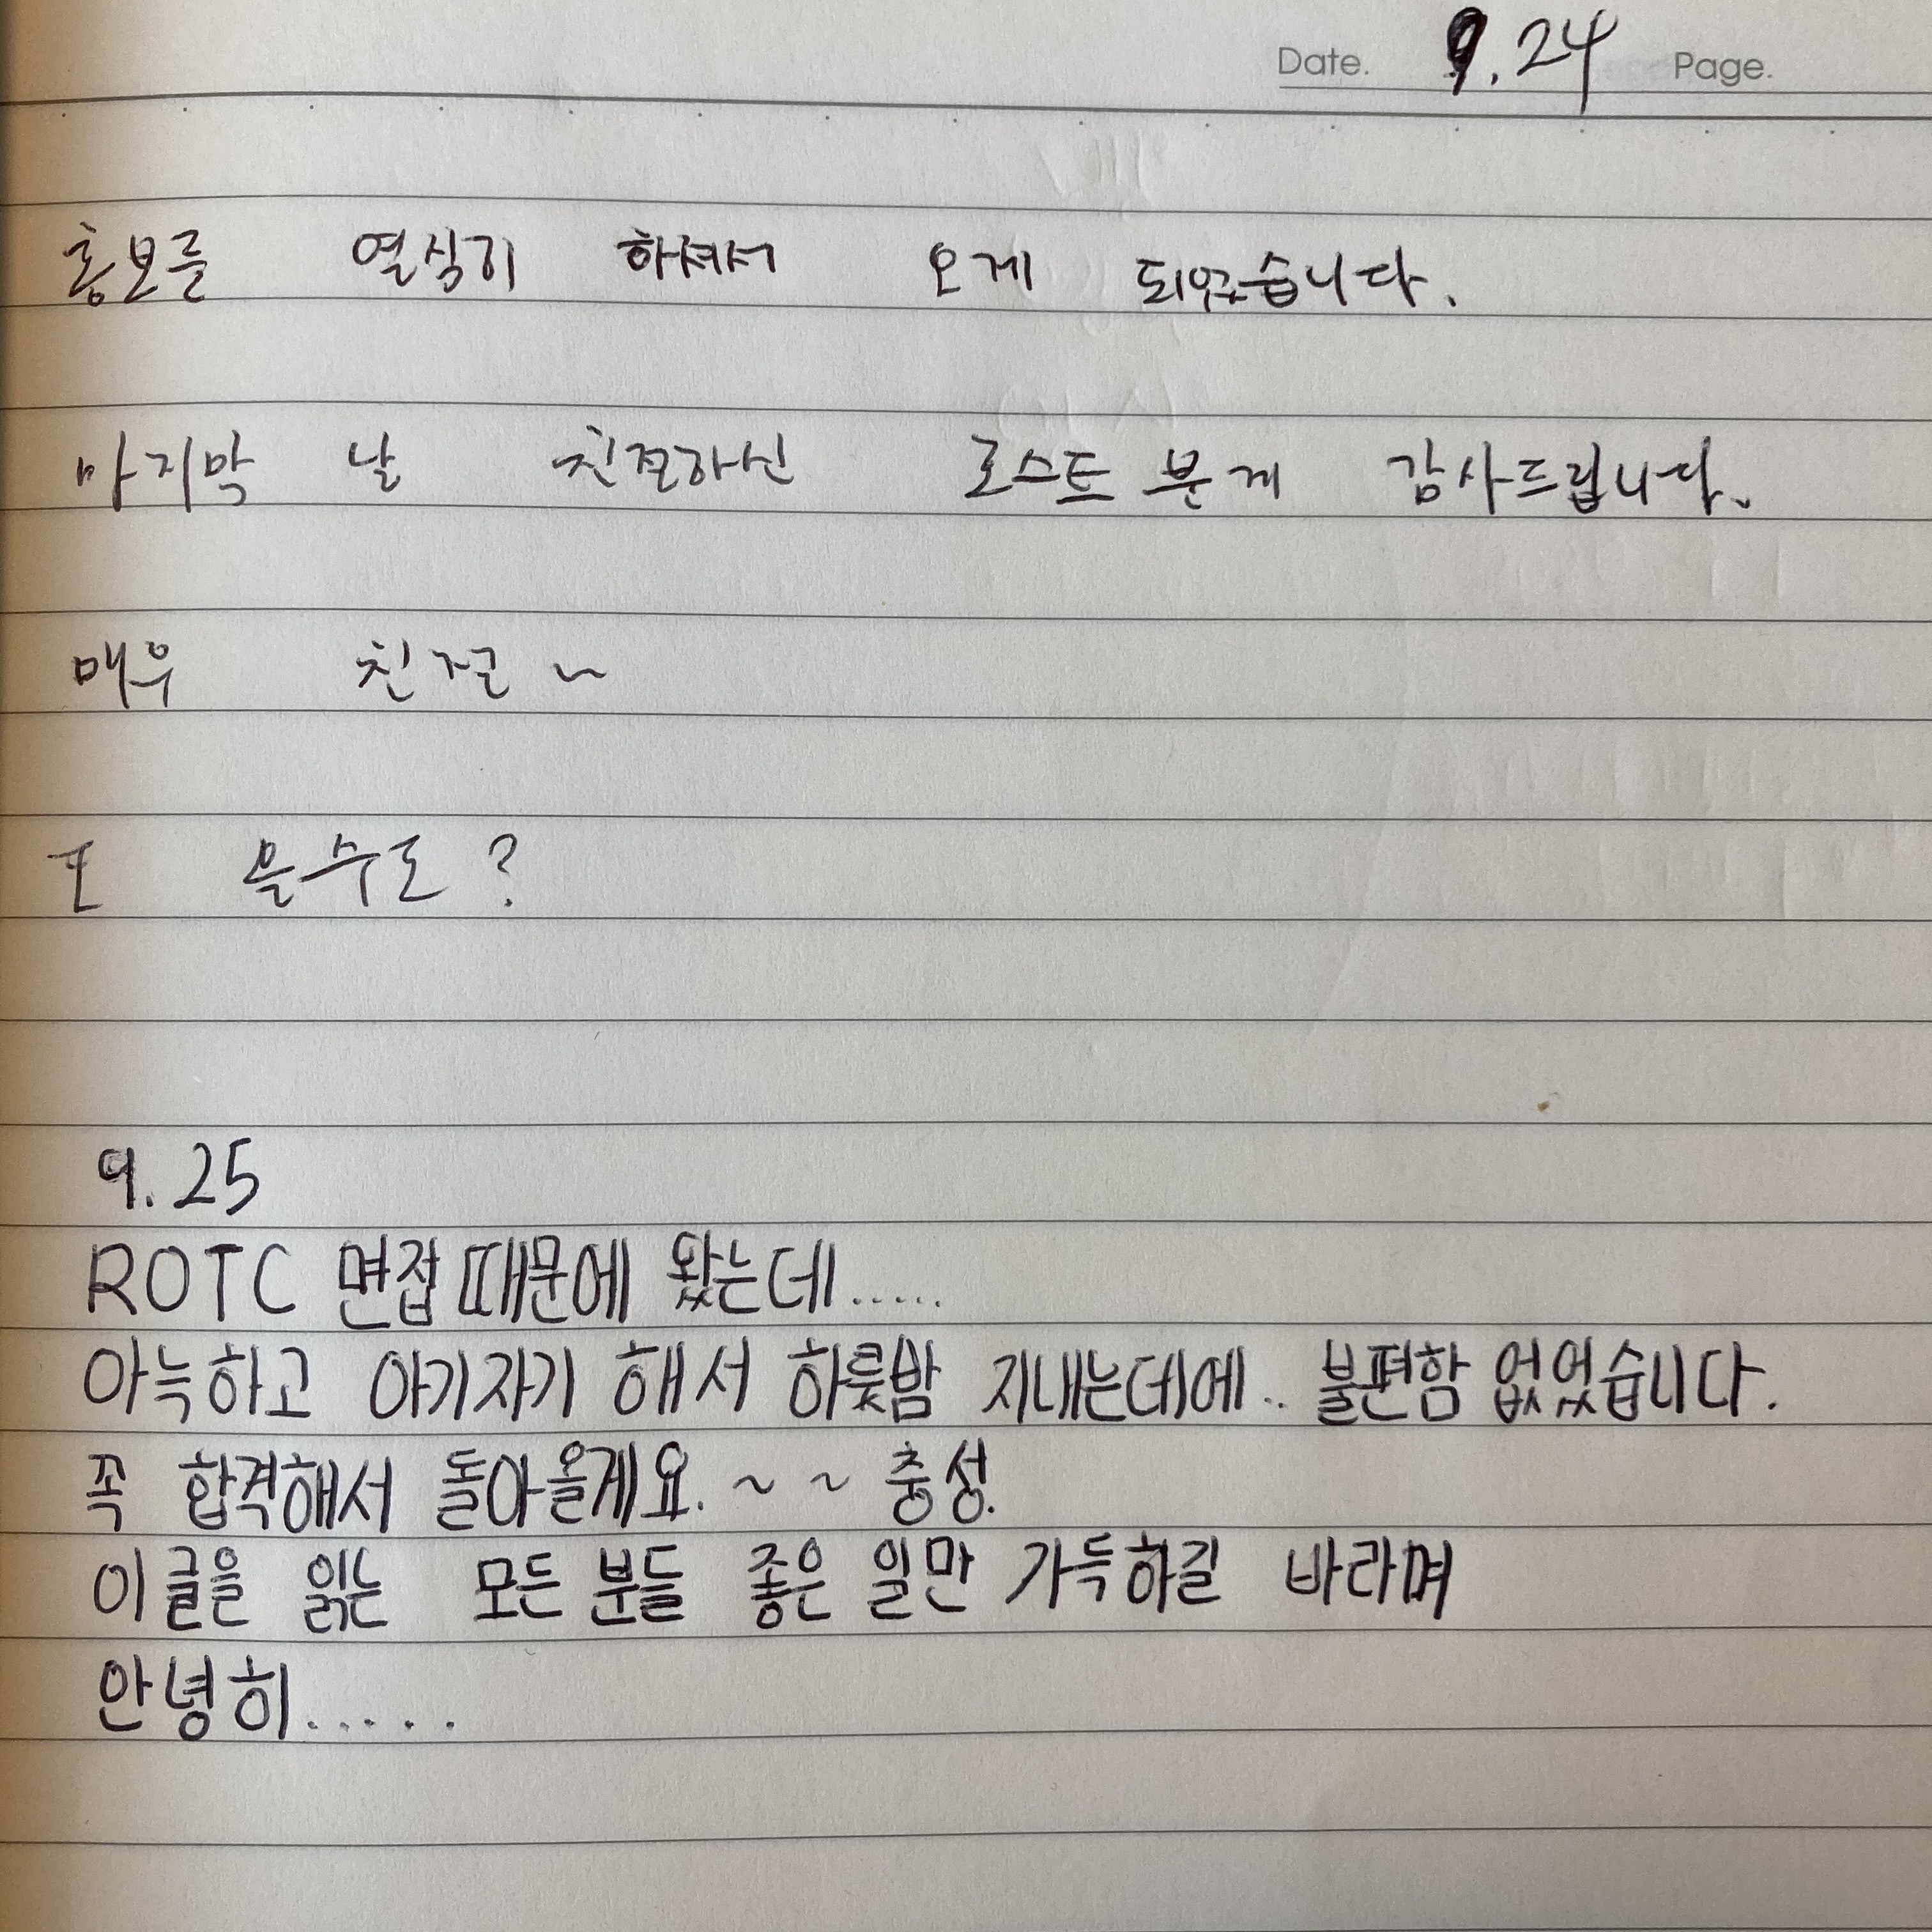 Date. 9.24 Page.
홍보를 열심히 하셔서 오게 되었습니다.
마지막 날 친절하신 로스트 분께 감사드립니다.
매우 친절~
또 올수도?
9.25
ROTC 면접 때문에 왔는데.....
아늑하고 아기자기 해서 하룻밤 지내는데에.. 불편함 없었습니다.
꼭 합격해서 돌아올게요.~~ 충성.
이 글을 읽는 모든 분들 좋은 일만 가득하길 바라며
안녕히.....